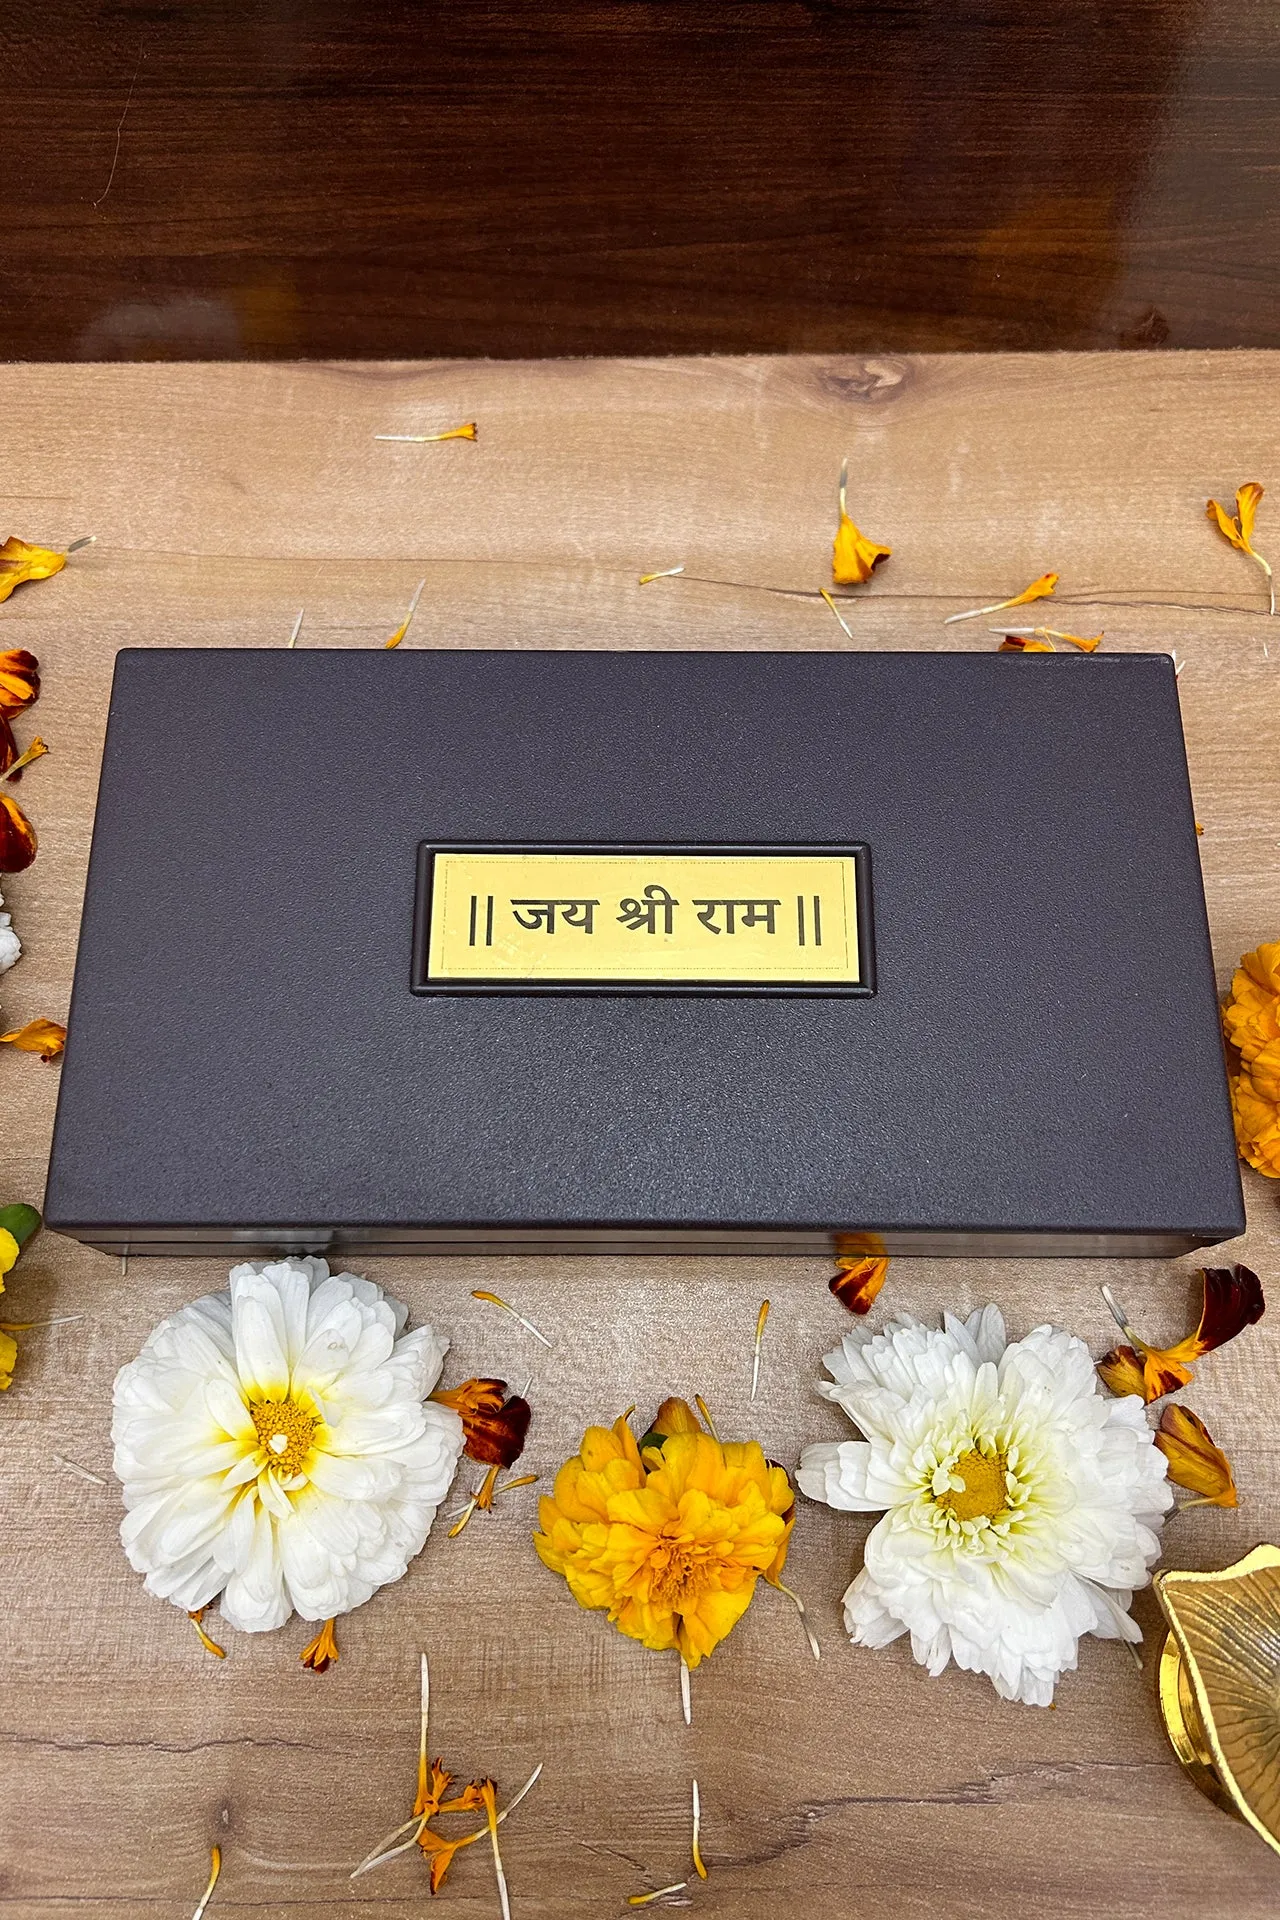 || जय श्री राम ||